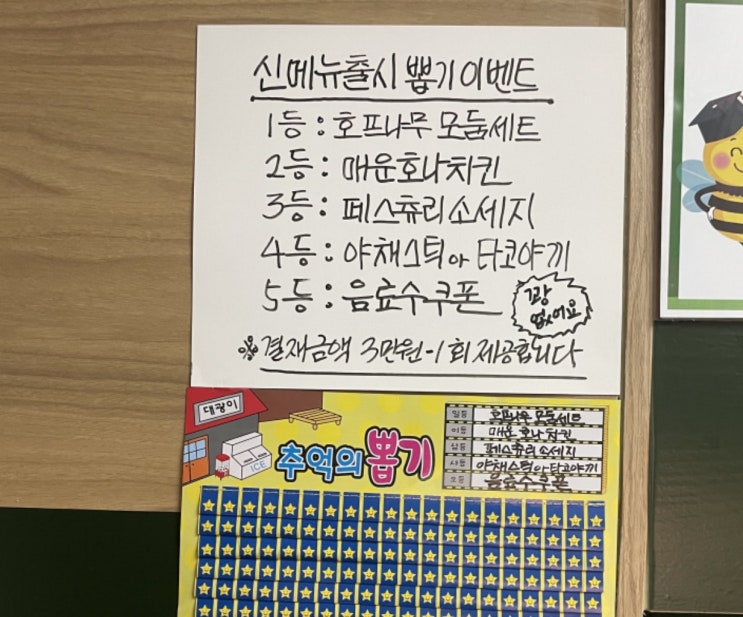 신메뉴출시 뽑기이벤트
1등 : 호프나무 모둠세트
2등 : 매운호나치킨
3등 : 페스츄리소세지
4등 : 야채스틱 or 타코야끼
5등 : 음료수쿠폰
꽝 없어요
결재금액 3만원-1회 제공합니다
대광이
ICE
추억의 뽑기
일등 호프나무 모둠세트
이등 매운 호나치킨
삼등 페스츄리소세지
사등 야채스틱 or 타코야끼
오등 음료수쿠폰